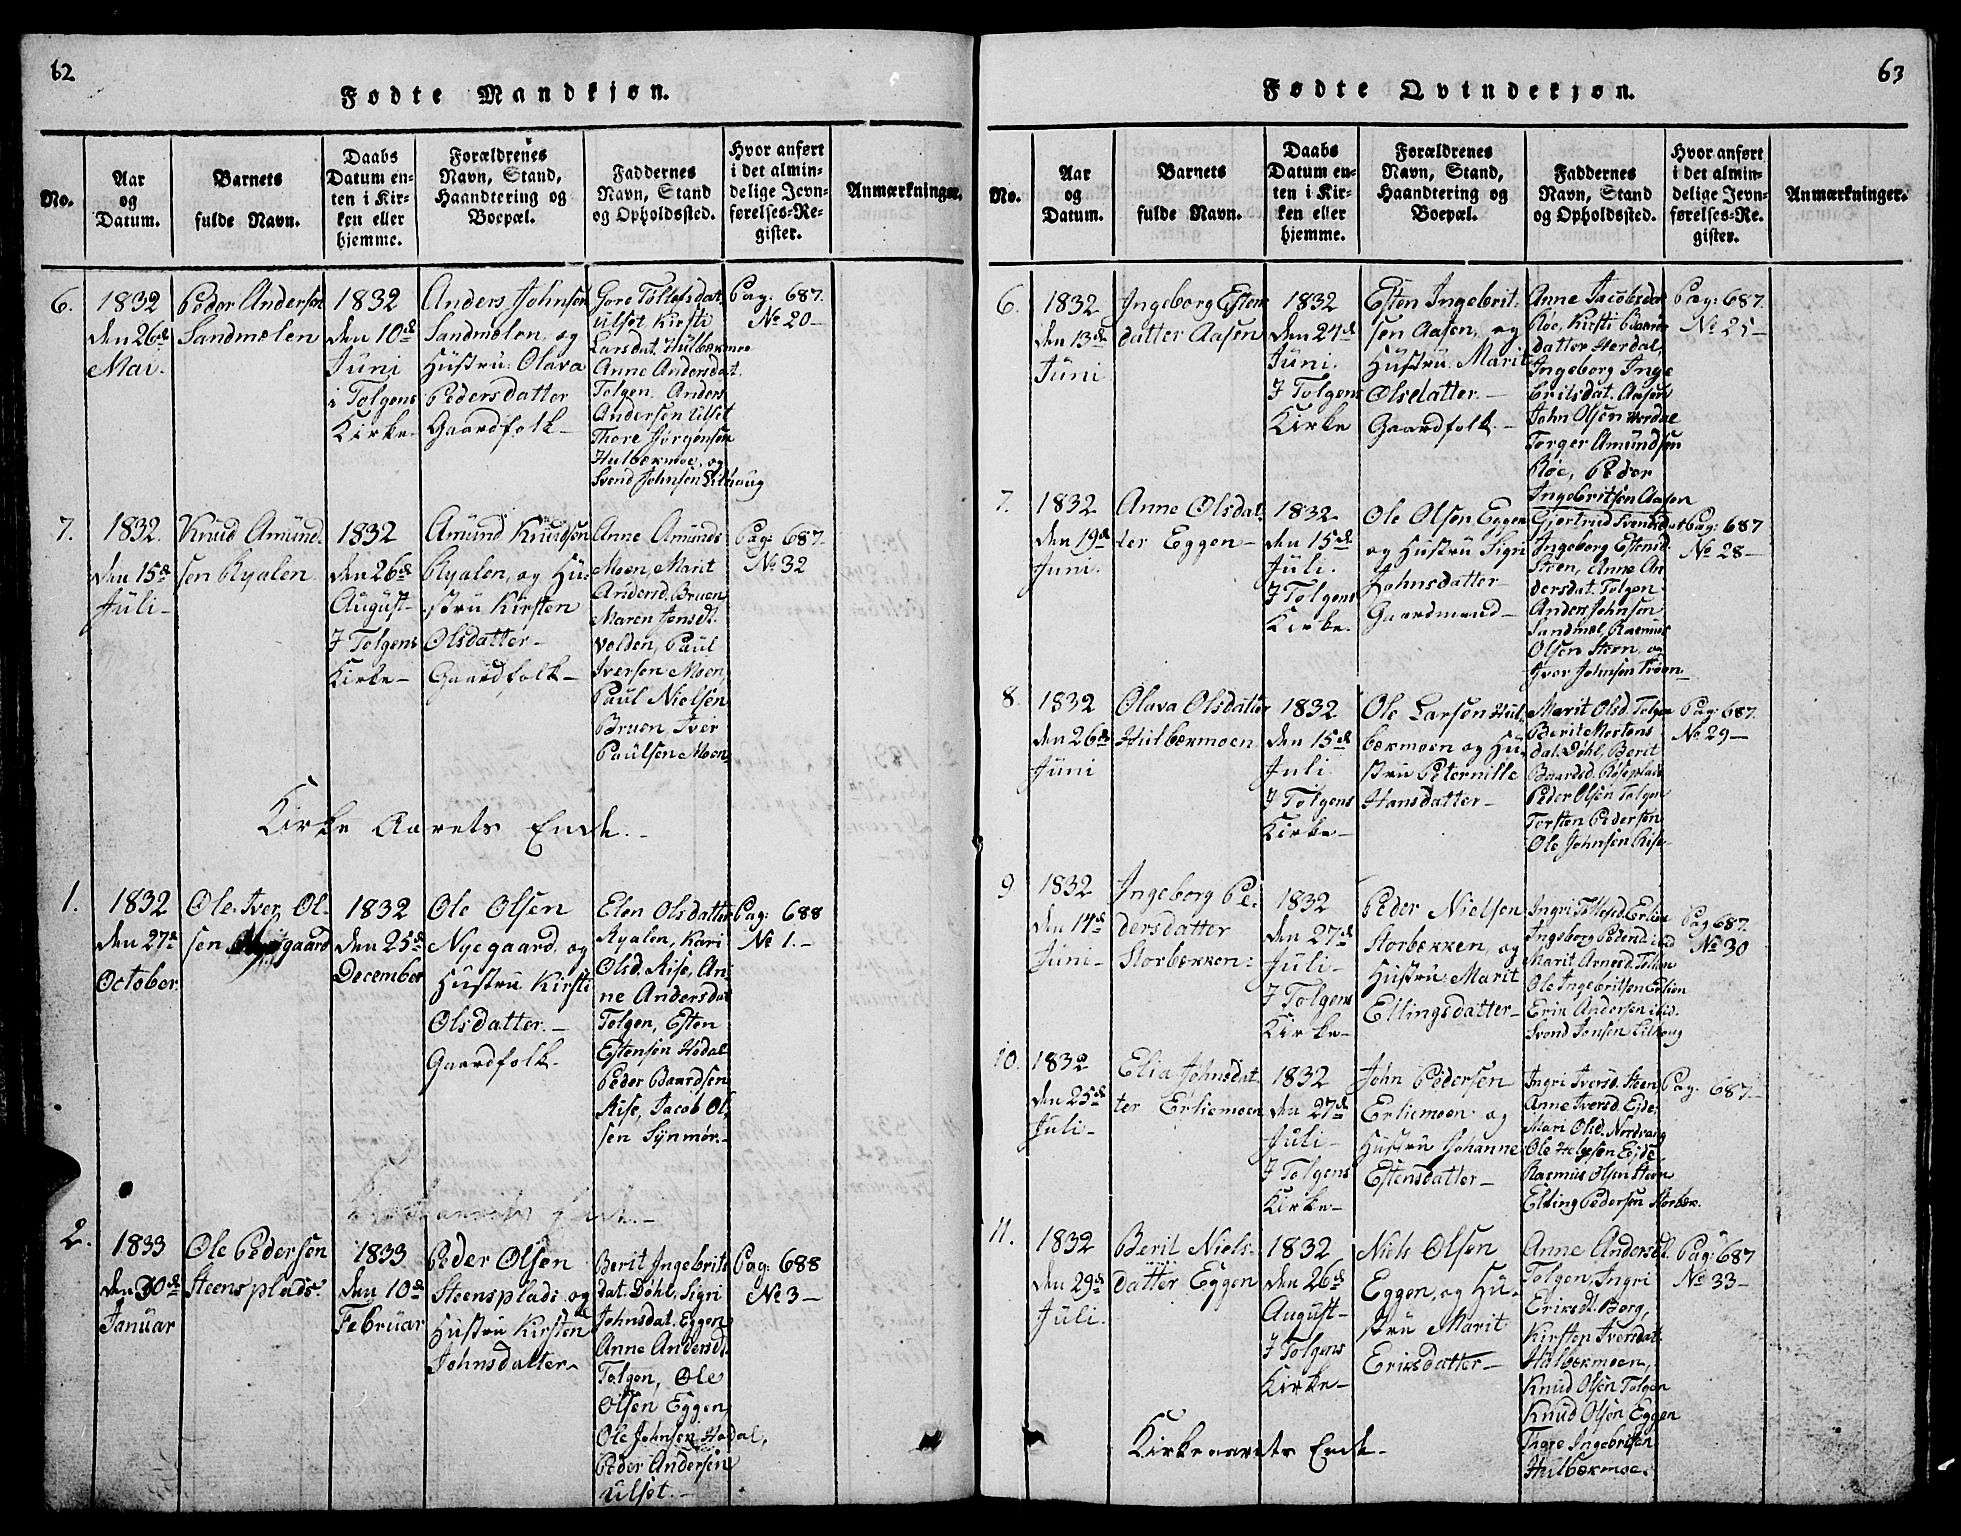 62
Fødte Mandkjøn.
No.
Aar
og
Datum.
Barnets
fulde Navn.
Daabs
Datum en-
ten i Kir-
ken eller
hjemme.
Forældrenes
Navn, Stand,
Haandtering og
Boepæl.
Faddernes
Navn, Stand
og Opholdssted.
Hvor anført
i det almin-
delige Jevn-
førelses-Re-
gister.
Anmærkninger.
6.
1832
den 26de
Mai.
Peder Andersen
Sandmælen
1832
den 10de
Juni
i Tolgens
Kirke
Anders Johnsen
Sandmælen, og
Hustru: Olava
Pedersdatter
Gaardfolk
Gore Tollefsdat.
Ulset, Kirsti
Larsdat. Hulbækmoe
Anne Andersdat.
Tolgen, Anders
Andersen Ulset
Thore Jørgensen
Hulbækmoe, og
Svend Johnsen Lilhaug
Pag: 687.
No 20
7.
1832.
den 15de
Juli
Knud Amund-
sen Ryalen.
1832
den 26de
August
I Tolgens
Kirke
Amund Knudsen
Ryalen, og Hu-
stru Kirsten
Olsdatter
Gaardfolk
Anne Amunds
Moen, Marit
Andersd. Bruen
Maren Jensdt.
Volden, Paul
Iversen Moen,
Paul Nielsen
Bruen, Iver
Paulsen Moen,
Pag: 687.
No 32
Kirke Aarets Ende.
1.
1832
den 27de
October
Ole Iver Ol-
sen Nyegaard
1832
den 25de
December
Ole Olsen
Nyegaard, og
Hustru Kirsti
Olsdatter.
Gaardfolk.
Elen Olsdatter
Ryalen, Kari
Olsd. Rise, An
ne Andersdat
Tolgen, Esten
Estensen Hodal
Peder Baardsen
Rise, Jacob Ol-
sen Synmør.
Pag: 688
No 1.
2.
1833
den 30de
Januar
Ole Pedersen
Steensplads.
1833
den 10de
Februar
Peder Olsen
Steensplads og
Hustru Kirsten
Johnsdatter
Berit Ingebrits
dat. Døhl, Sigri
Johnsdat. Eggen
Anne Andersdt.
Tolgen, Ole
Olsen Eggen,
Ole Johnsen Hodal,
Peder Andersen
Ulset.
Pag: 688
No 3
63
Fødte Qvindekjøn.
No.
Aar
og
Datum.
Barnets
fulde Navn.
Daabs
Datum en-
ten i Kir-
ken eller
hjemme.
Forældrenes
Navn, Stand,
Haandtering og
Boepæl.
Faddernes
Navn, Stand
og Opholdssted.
Hvor anført
i det almin-
delige Jevn-
førelses-Re-
gister.
Anmærkninger.
6.
1832
den 13de
Juni
Ingeborg Estens
datter Aasen
1832
den 24de
Juni.
I Tolgens
Kirke
Esten Ingebrit-
sen Aasen, og
Hustru: Marit
Olsdatter.
Gaardfolk.
Anne Jacobsdat
Røe, Kirsti Baards
datter Herdal,
Ingeborg Inge
britsdat. Aasen
John Olsen Herdal
Torger Amundsen
Røe, Peder
Ingebritsen Aasen
Pag: 687.
No 25
7.
1832
den 19de
Juni.
Anne Olsdat.
ter Eggen
1832
den 15de
Juli.
I Tolgens
Kirke.
Ole Olsen Eggen
og Hustru Sigri
Johnsdatter
Gaardmand
Gjertrud Svendsdat
Ingeborg Estensd.
Steen, Anne An
dersdat. Tolgen
Anders Johnsen
Sandmæl, Rasmus
Olsen Steen, og
Iver Johnsen Trøen
Pag: 687
No 28
8
1832
den 26de
Juni
Olava Olsdatter
Hulbækmoen
1832
den 15de
Juli.
I Tolgens
Kirke
Ole Larsen Hul-
bækmoen og Hu-
stru Peternille
Hansdatter
Marit Olsd. Tolgen
Berit Mortens
dat. Døhl, Berit
Baardsd. Riseplads
Peder Olsen Tolgen
Torsten Pedersen
Ole Johnsen Rise
Pag: 687.
No 29
9
1832
den 14de
Juni
Ingeborg Pe-
dersdatter
Storbækken:
1832
den 27de
Juli
I Tolgens
Kirke
Peder Nielsen
Storbækken, og
Hustru: Marit
Ellingsdatter
Ingri Tollefsd. Erlien
Marit Arnesd. Tollan
Ole Ingebritsen Erlien
Erik Andersen ibid.
Svend Jensen Lilhaug
Pag 687.
No 30
10.
1832
den 25de
Juli
Elia Johnsdat-
ter Erliemoen
1832
den 27de
Juli
I Tolgens
Kirke
John Pedersen
Erliemoen og
Hustru Johanne
Estensdatter
Ingri Iversd. Steen
Anne Iversd. Eide
Mari Olsd. Nordvang
Ole Helgesen Eide
Rasmus Olsen Steen
Elling Pedersen Storbæk.
Pag: 687.
11.
1832
den 29de
Juli.
Berit Niels-
datter Eggen
1832
den 26de
August
I Tolgens
Kirke
Niels Olsen
Eggen, og Hu-
stru Marit
Eriksdatter
Anne Andersdt.
Tolgen, Ingri
Eriksdt. Borg,
Kirsten Iversdat.
Hulbækmoen,
Knud Olsen Tolgen
Knud Olsen Eggen
Thore Ingebritsen
Hulbækmoe.
Pag: 687
No 33
Kirkeaarets Ende.